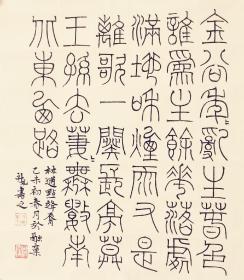 金谷年〻亂生春色
誰為主餘花落處
滿地和煙雨又是
離歌一闋長亭暮
王孫去萋〻無數南
北東西路
林逋點絳脣
乙未初春月於
書之